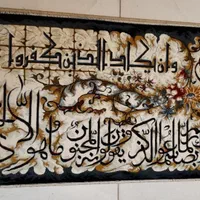 وان يكاد الذين كفروا
لما سمعوا الذكر و يقولون انه لمجنون و ما هو الا